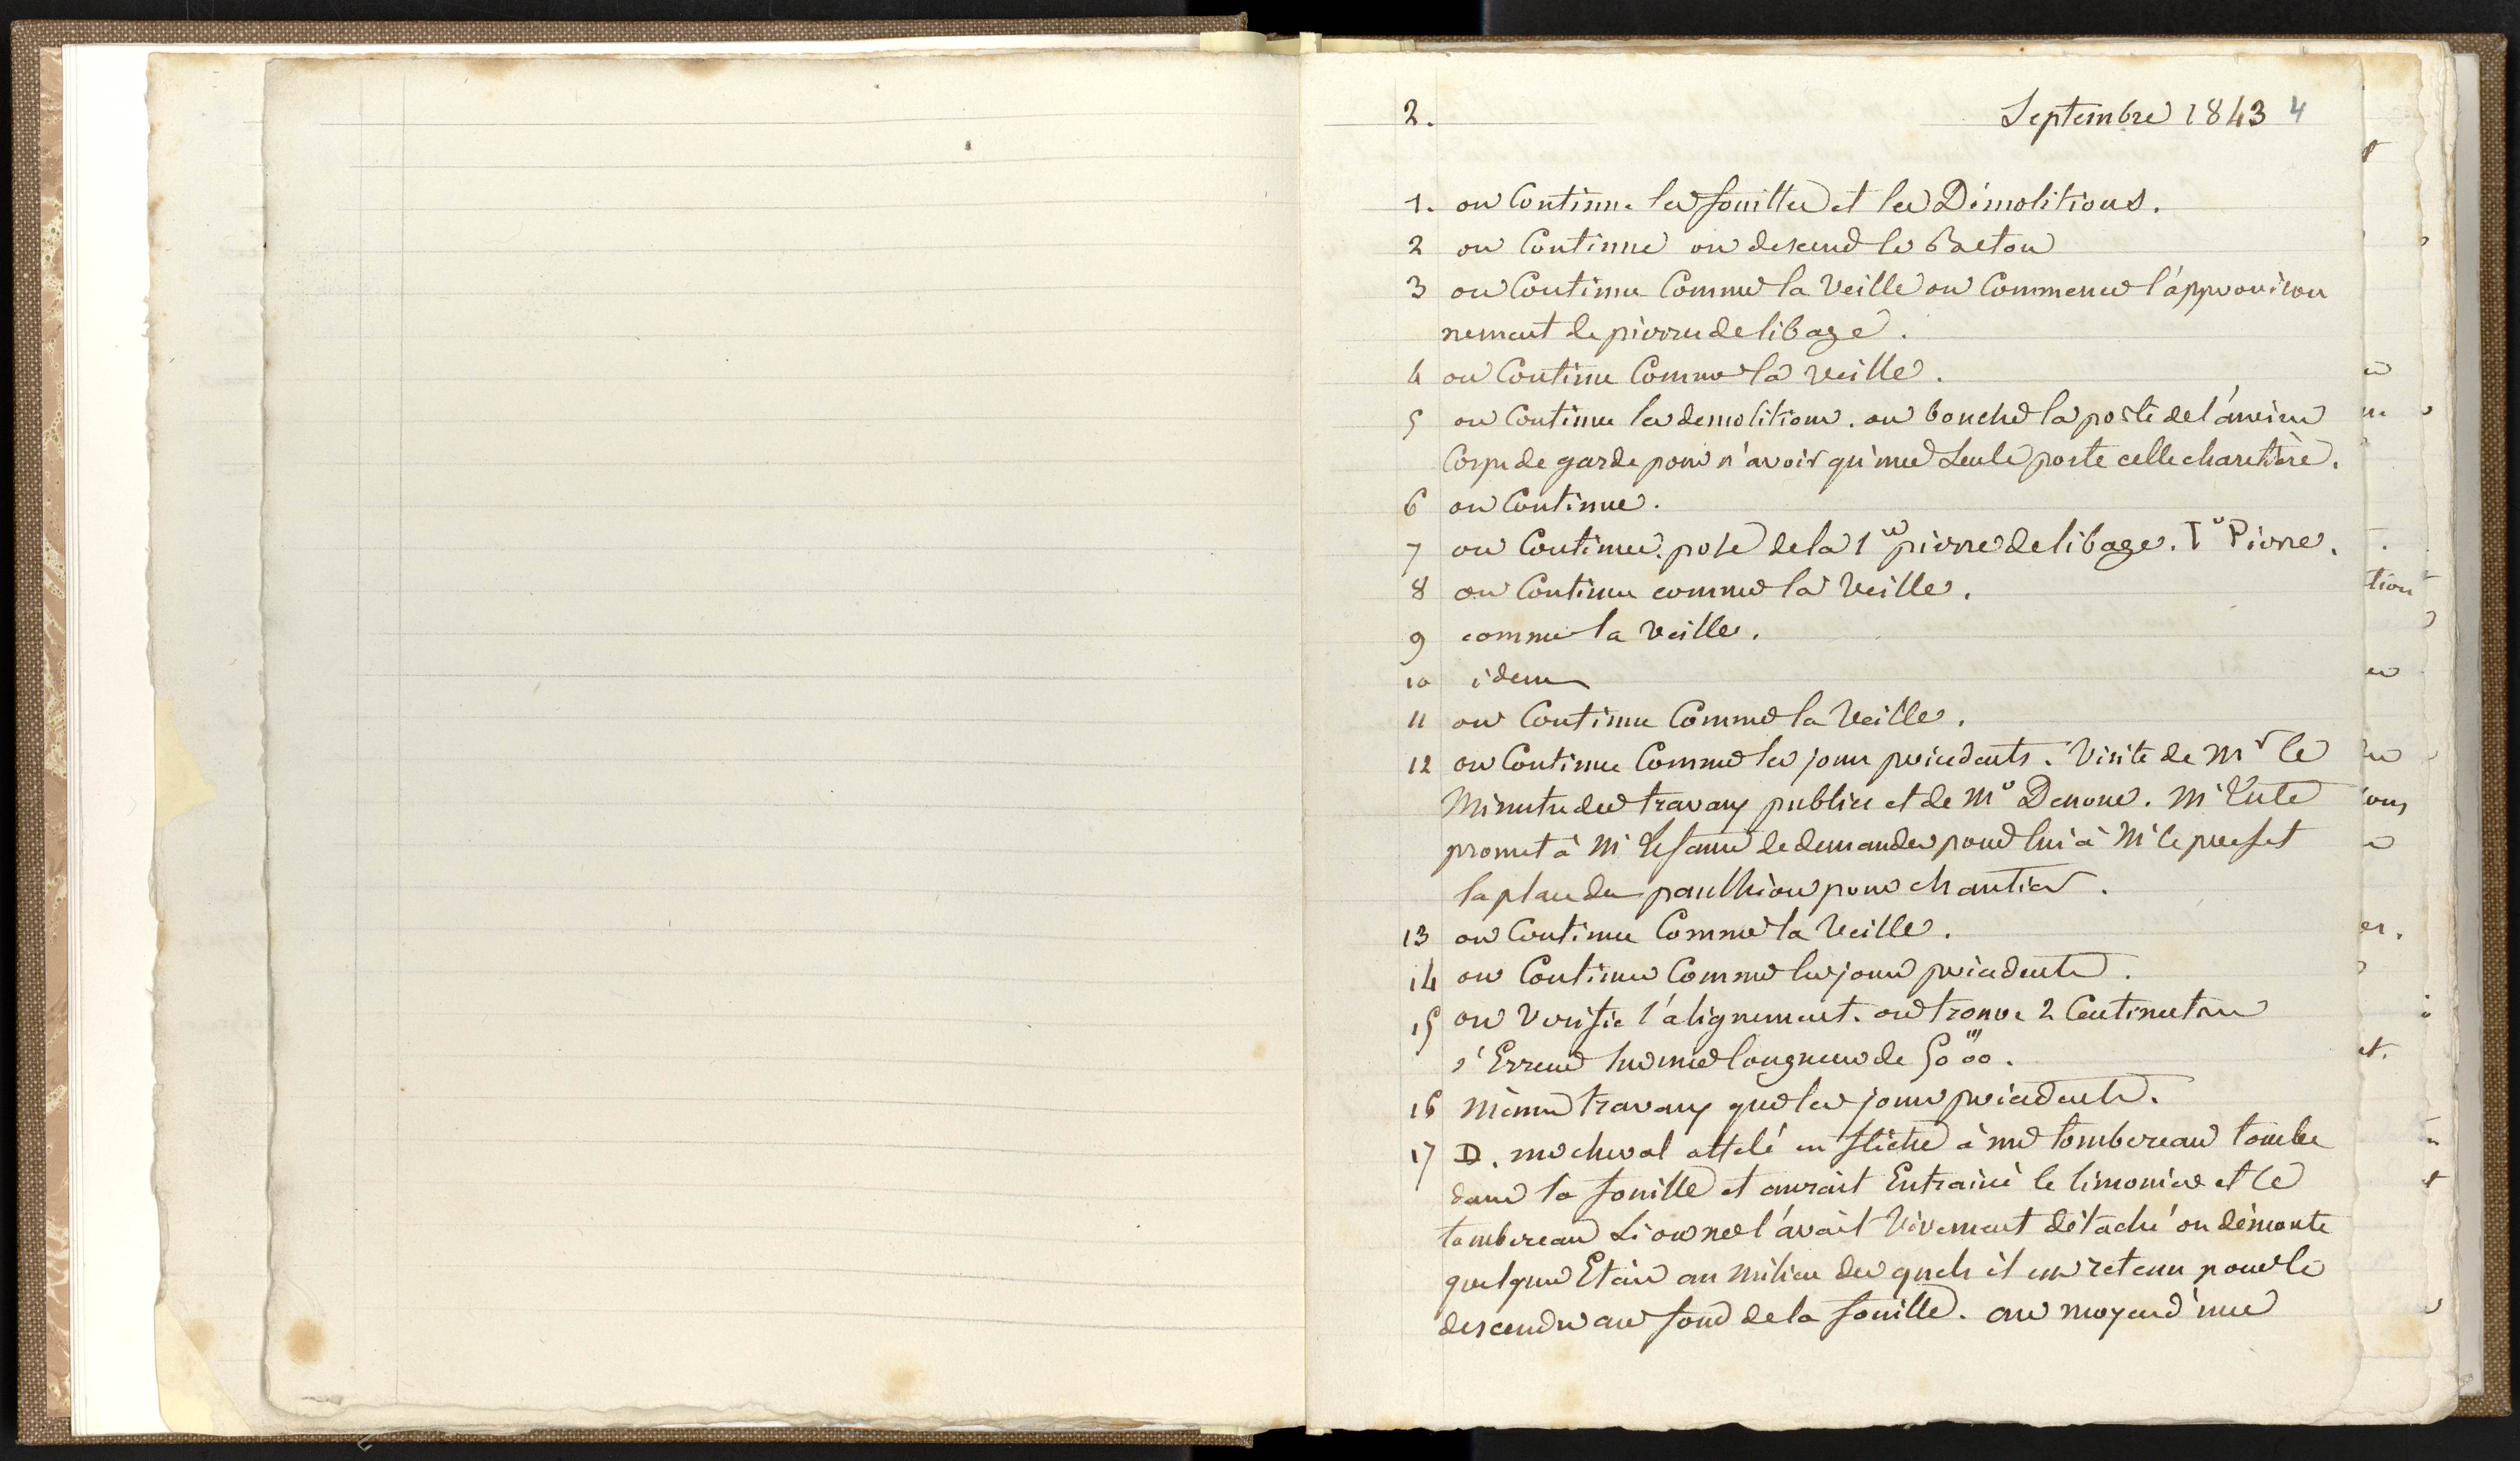 2.
Septembre 1843 4
1. on Continue les fouilles et les Démolitions.
2 on Continue on descend le Baeton
3 on Continue Comme la Veille on Commence l'approvision
nement de pierres de libage.
4 on Continue Comme la veille.
5 on Continue les demolitions. on bouche la porte de l'ancien
Corps de garde pour n'avoir qu'une Seule porte celle charetière.
6 on Continue.
7 on Continue. pose de la 1re pierre de libage. 1e Pierre.
8 on Continue comme la Veille.
9 comme la Veille.
10 idem
11 on Continue Comme la Veille.
12 on Continue Comme les jours précedents. Visite de Mr le
Ministre des travaux publics et de Mr Denoue. Mr
promet à Mr de demander pour lui à Mr le preefet
la place du panthéon pour chantier.
13 on Continue Comme la Veille.
14 on Continue Comme les jours précedents.
15 on Verifie l'alignement. on trouve 2 Centimetres
d'Erreur sur une longueur de 50m00.
16 mêmes travaux que les jours précedents.
17 D. un cheval attelé en fléche à un tombereau tombe
dans la fouille et aurait Entrainé le limonier et le
tombereau Si on ne l'avait Vivement détaché on démonte
quelques Etais au milieu des quels il est retenu pour le
descendre au fond de la fouille. au moyen d'une